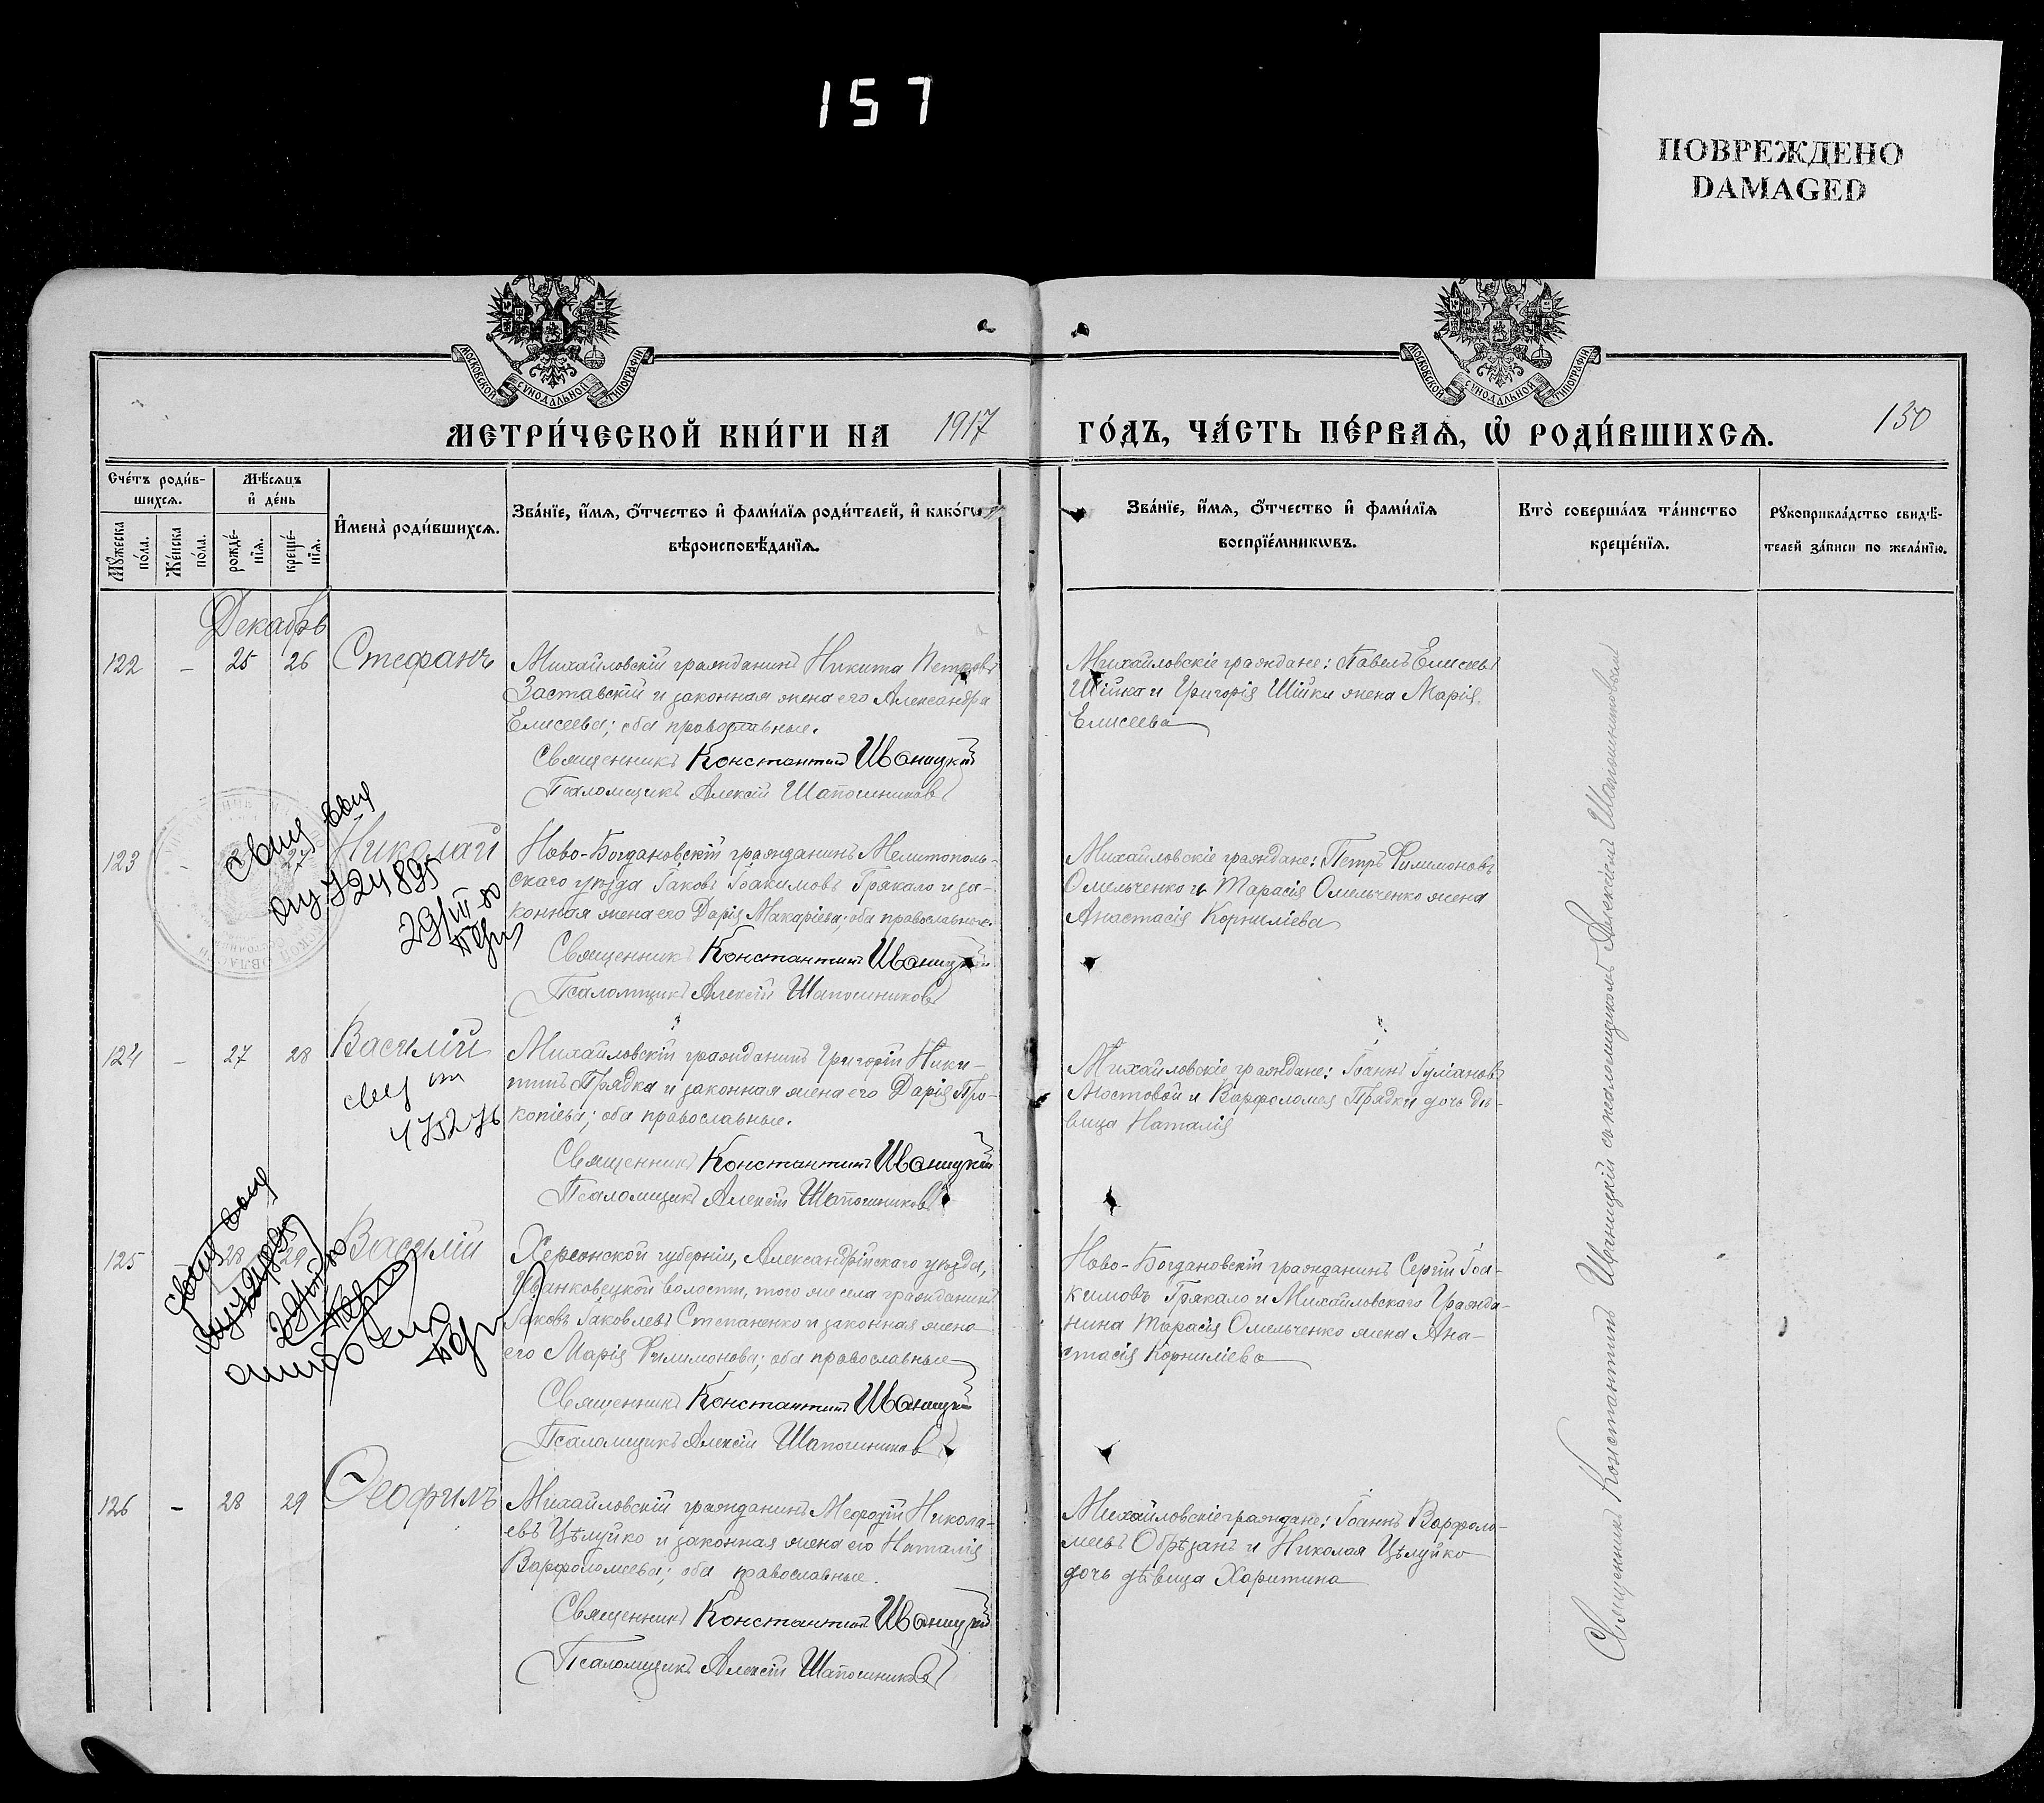 157
ПОВРЕЖДЕНО
DAMAGED
МОСКОВСКОЙ СѴНОДАЛЬНОЙ ТИПОГРАФІИ
МОСКОВСКОЙ СѴНОДАЛЬНОЙ ТИПОГРАФІИ
МЕТРИ́ЧЕСКОЙ КНИ́ГИ НА 1917
ГО́ДЪ, ЧА́СТЬ ПЕ́РВАѦ, Ѡ҆ РОДИ́ВШИХСѦ.
130
Сче́тъ роди́в-
шихсѧ.
Мꙋжеска
по́ла.
Же́нска
по́ла.
Мѣ́сѧцъ
и҆ де́нь
рожде́-
нїѧ.
креще́-
нїѧ.
И҆мена̀ роди́вшихсѧ.
Зва́нїе, и҆́мѧ, ѻ҆́тчество и҆ фами́лїѧ роди́телей, и҆ како́гѡ
вѣроисповѣ́данїѧ.
Зва́нїе, и҆́мѧ, ѻ҆́тчество и҆ фами́лїѧ
воспрїе́мникѡвъ.
Кто̀ соверша́лъ та́инство
креще́нїѧ.
Рꙋкоприкла́дство свидѣ́-
телей за́писи по жела́нїю.
Декабрь
122 - 25 26 Стефанъ
Михайловскій гражданинъ Никита Петровъ
Заставскій и законная жена его Александра
Елисеева; оба православные.
Священникъ Константинъ Иваницкій
Псаломщикъ Алексій Шапошниковъ
Михайловскіе граждане: Павелъ Елисеевъ
Шійка и Григорія Шійки жена Марія
Елисеева
123 - 27 Николай
Ново-Богдановскій гражданинъ Мелитополь-
скаго уѣзда Іаковъ Іоакимовъ Грякало и за-
конная жена его Дарія Макаріева; оба православные.
Священникъ Константинъ Иваницкій
Псаломщикъ Алексій Шапошниковъ
724895
29/VII-80
Михайловскіе граждане: Петръ Филимоновъ
Омельченко и Тарасія Омельченко жена
Анастасія Корниліева
124 - 27 28 Василій
Михайловскій гражданинъ Григорій Ники-
тинъ Прядка и законная жена его Дарія Про-
копіева; оба православные.
Священникъ Константинъ Иваницкій
Псаломщикъ Алексій Шапошниковъ
Михайловскіе граждане: Іоаннъ Іуліановъ
Мостовой и Варфоломея Прядки дочь дѣ-
вица Наталія
125 28 29 Василій
Херсонской губерніи, Александрійскаго уѣзда,
Иванковецкой волости, того же села гражданинъ
Іаковъ Іаковлевъ Степаненко и законная жена
его Марія Филимонова; оба православные
Священникъ Константинъ Иваницкій
Псаломщикъ Алексій Шапошниковъ
ошибочно
Ново-Богдановскій гражданинъ Сергій Іоа-
кимовъ Грякало и Михайловскаго гражда-
нина Тарасія Омельченко жена Ана-
стасія Корниліева
126 - 28 29 Ѳеофилъ
Михайловскій гражданинъ Меѳодій Никола-
евъ Цѣлуйко и законная жена его Наталія
Варфоломеева; оба православные.
Священникъ Константинъ Иваницкій
Псаломщикъ Алексій Шапошниковъ
Михайловскіе граждане: Іоаннъ Варфоло-
меевъ Обрѣзанъ и Николая Цѣлуйко
дочь дѣвица Харитина
Священникъ Константинъ Иваницкій съ псаломщикомъ Алексіемъ Шапошниковымъ